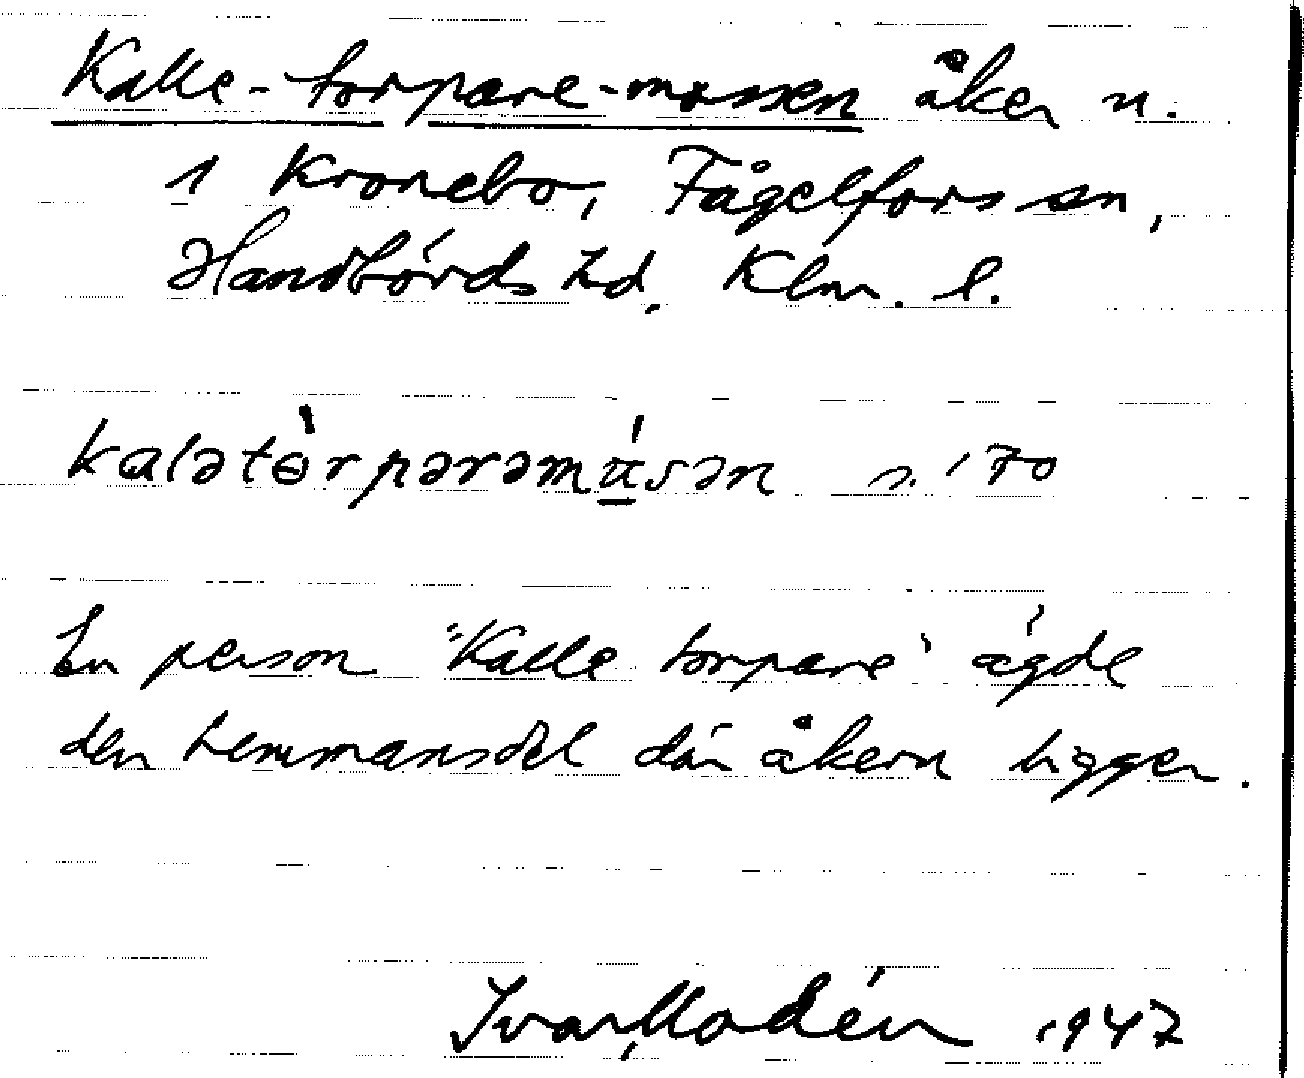 Kalle-torpare-mossen åker n.
1 Kronebo, Fågelfors sn,
Handbörds hd. Klm. l.
kalətòrparəmusən s. 170
En person "Kalle torpare" ägde
den hemmansdel där åkern ligger.
Ivar Modéer 1947